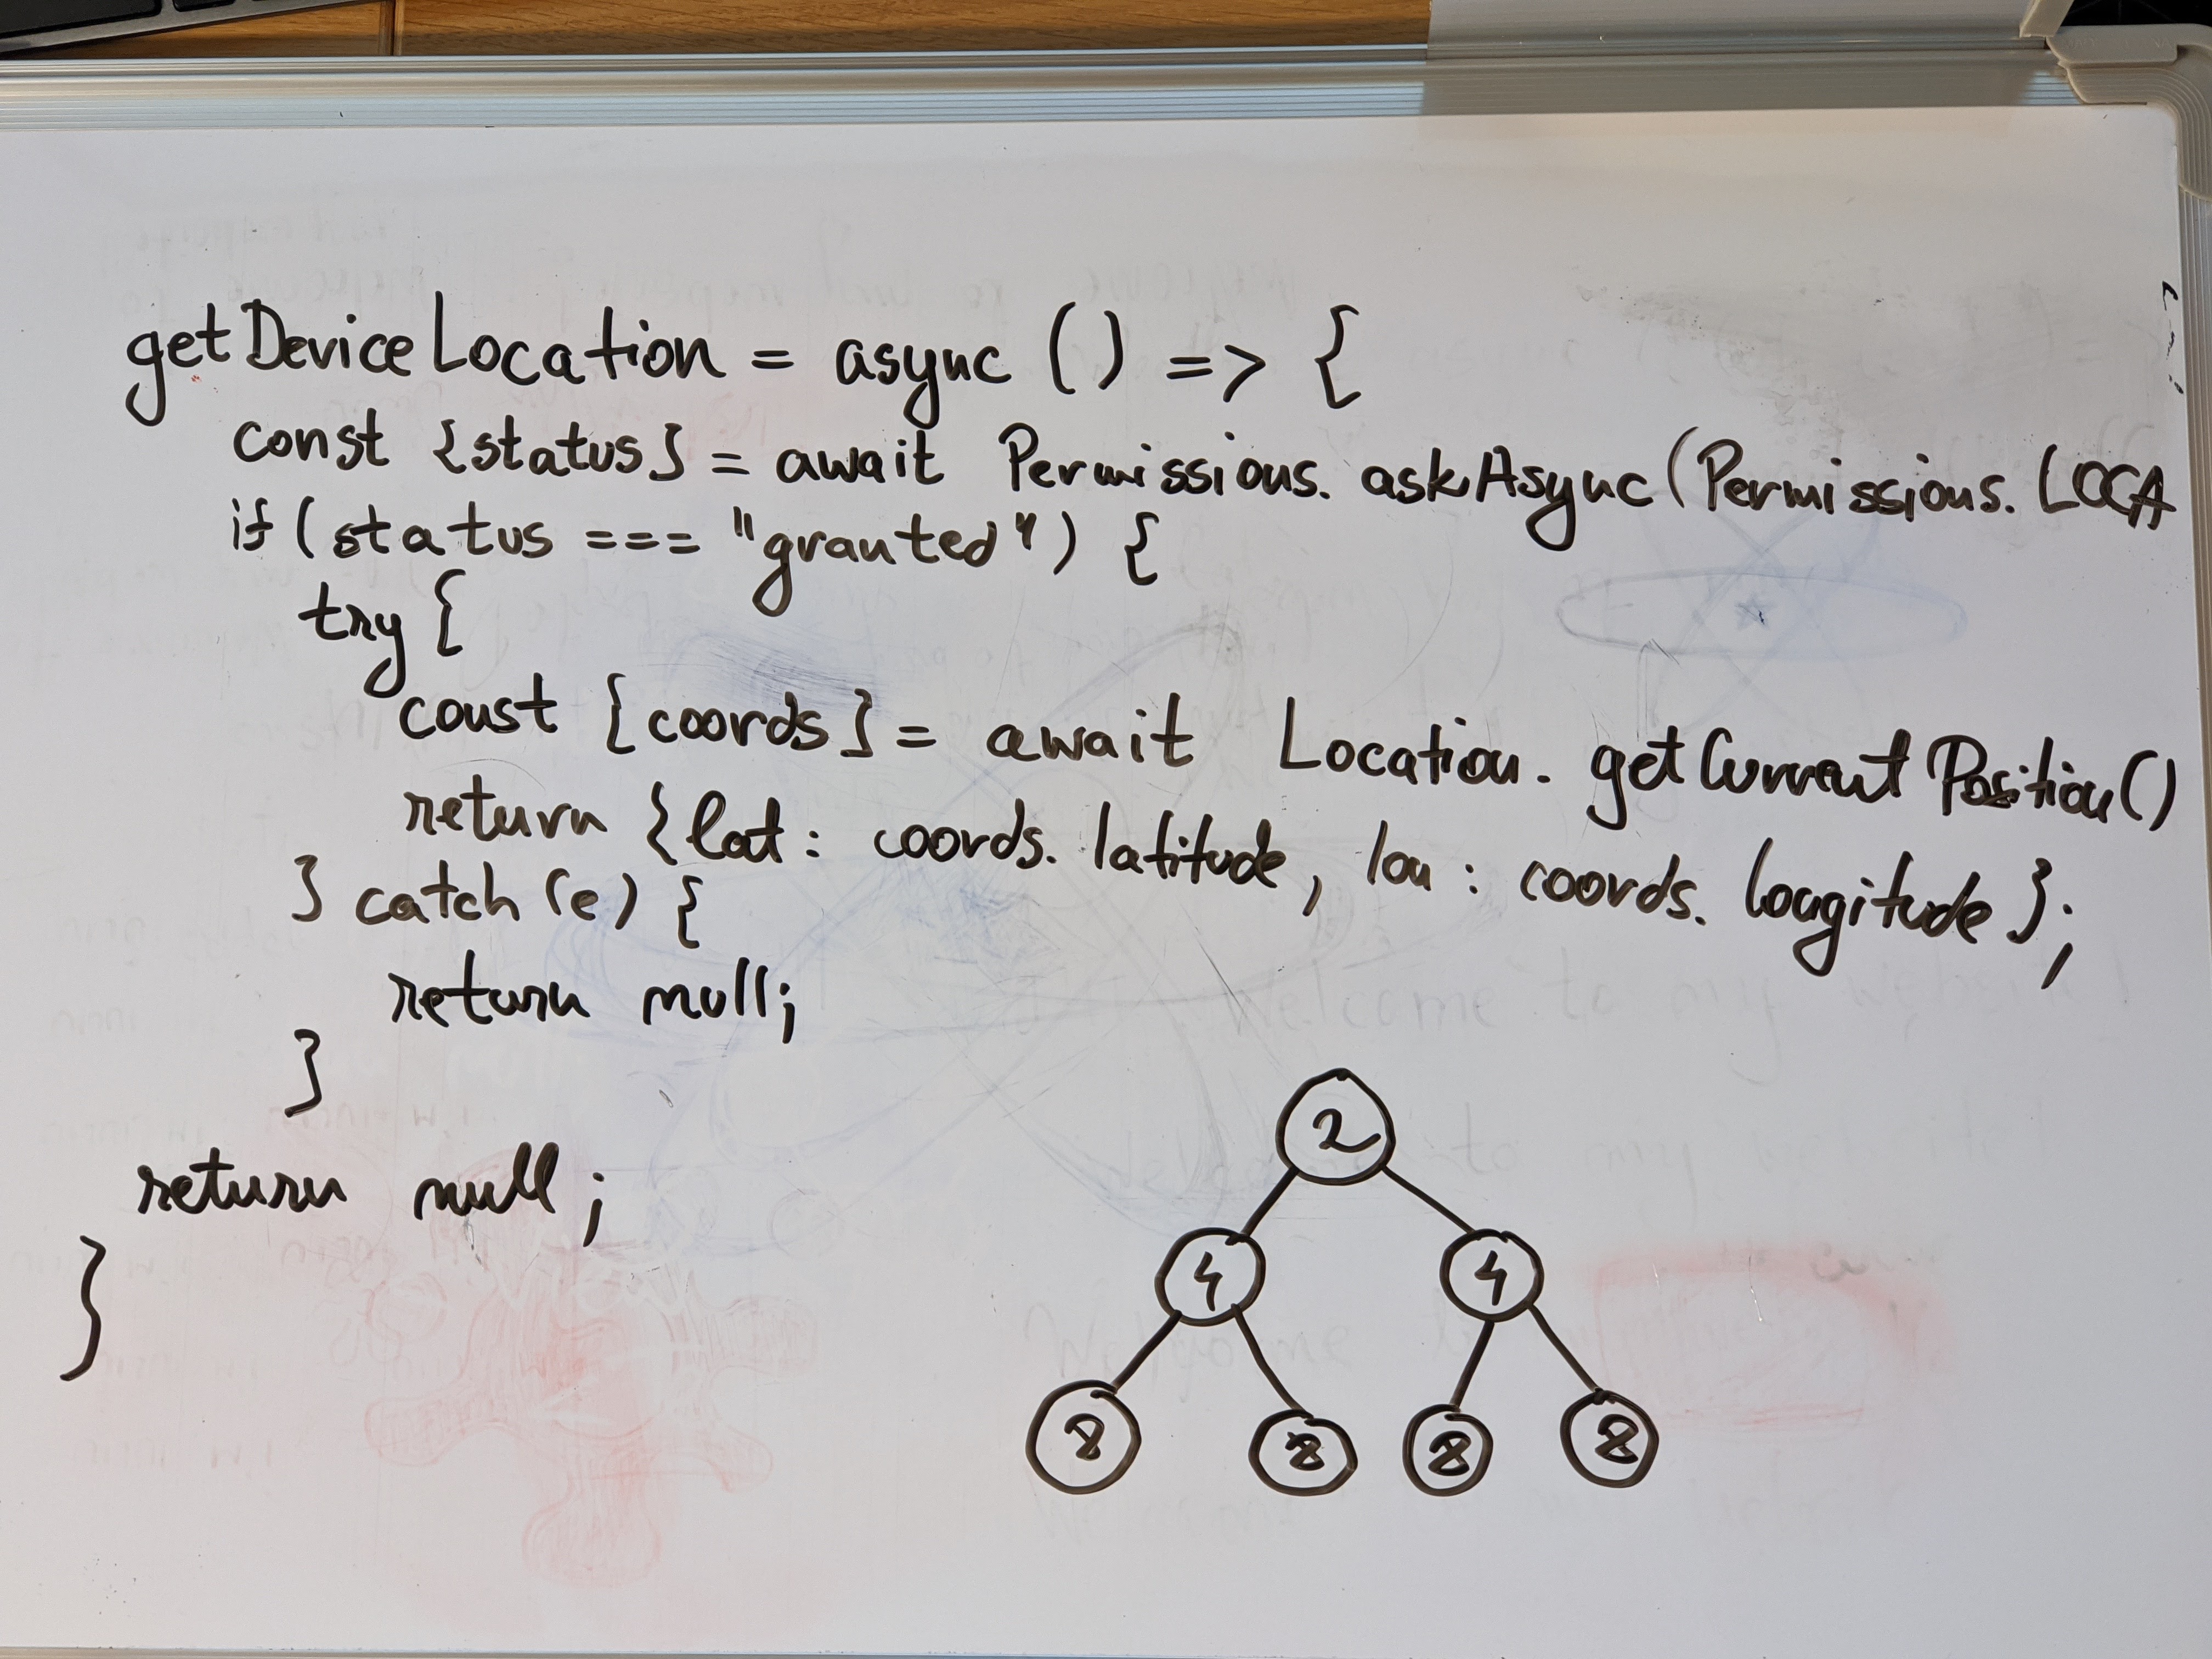 getDeviceLocation = async () => {
const {status} = await Permissions.askAsync(Permissions.LOCA
if (status === "granted") {
try {
const {coords} = await Location.getCurrentPosition()
return {lat: coords.latitude, lon: coords.longitude};
} catch (e) {
return null;
}
return null;
}
2
4 4
8 8 8 8